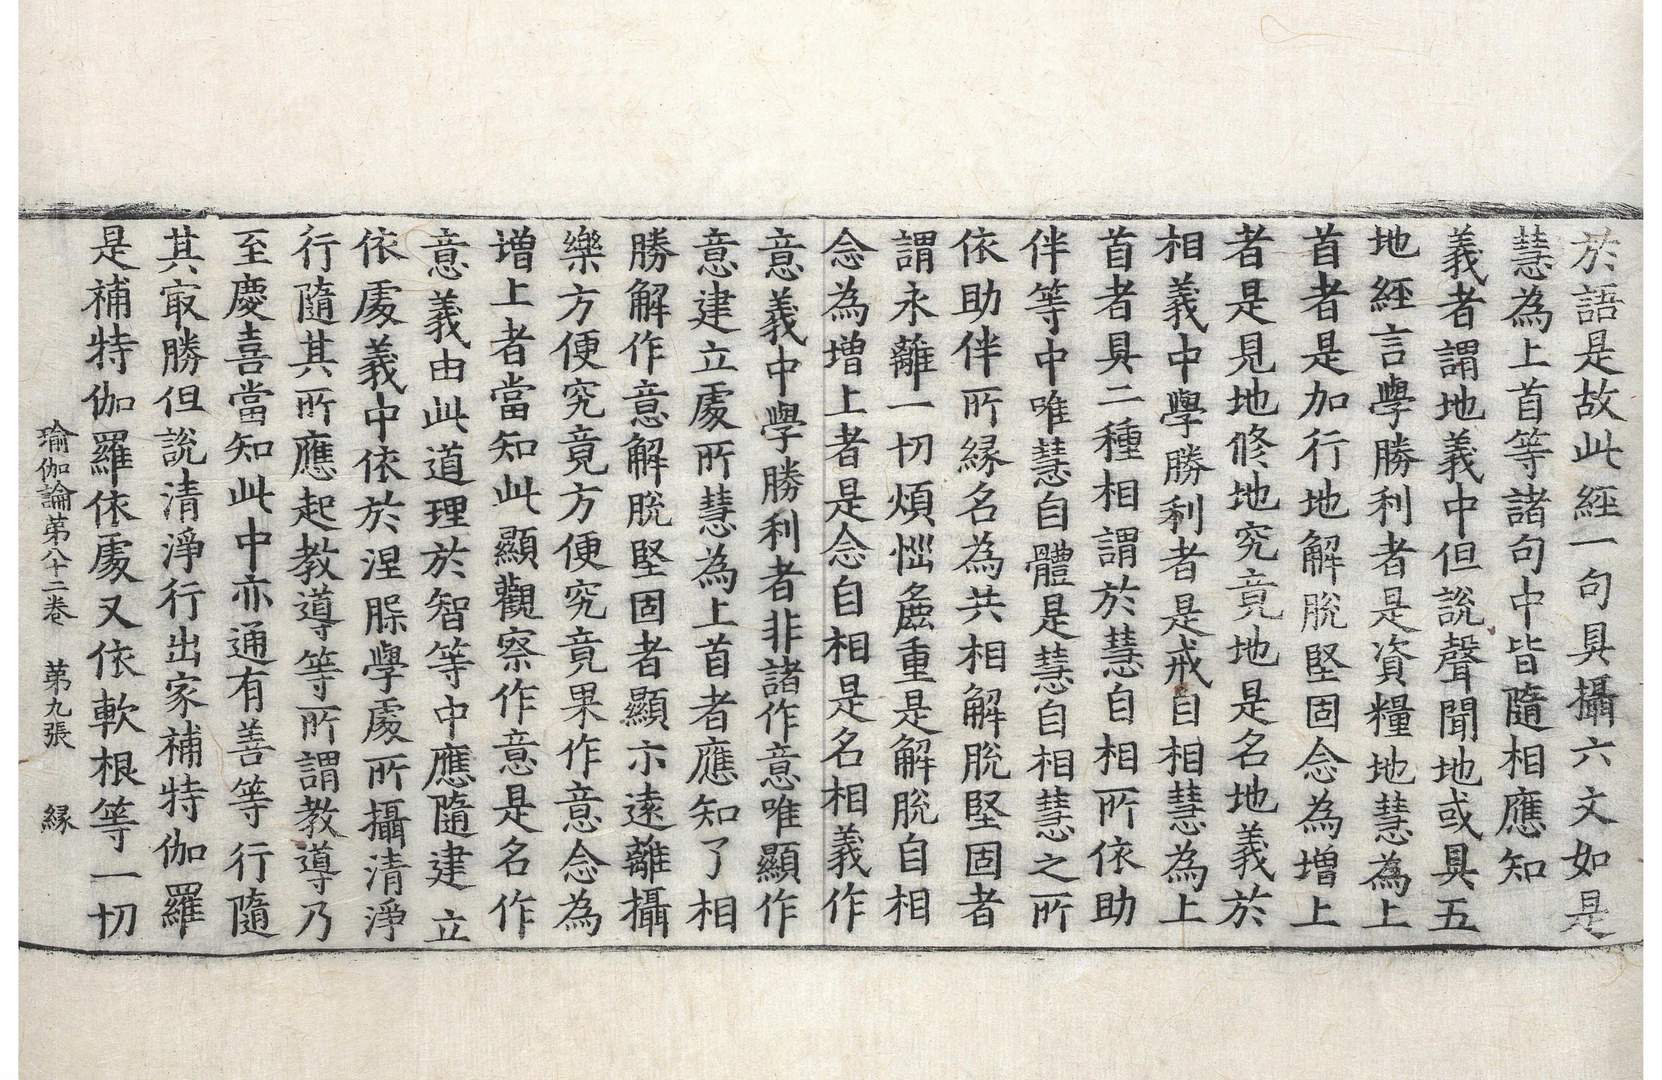 於語是故此經一句具攝六文如是
慧為上首等諸句中皆隨相應知
義者謂地義中但說聲聞地或具五
地經言學勝利者是資糧地慧為上
首者是加行地解脫堅固念為增上
者是見地修地究竟地是名地義於
相義中學勝利者是戒自相慧為上
首者具二種相謂於慧自相所依助
伴等中唯慧自體是慧自相慧之所
依助伴所緣名為共相解脫堅固者
謂永離一切煩惱麁重是解脫自相
念為增上者是念自相是名相義作
意義中學勝利者非諸作意唯顯作
意建立處所慧為上首者應知了相
勝解作意解脫堅固者顯示遠離攝
樂方便究竟方便究竟果作意念為
增上者當知此顯觀察作意是名作
意義由此道理於智等中應隨建立
依處義中依於涅槃學處所攝清淨
行隨其所應起教導等所謂教導乃
至慶喜當知此中亦通有善等行隨
其㝡勝但說清淨行出家補特伽羅
是補特伽羅依處又依軟根等一切
瑜伽論第八十二卷 第九張 緣